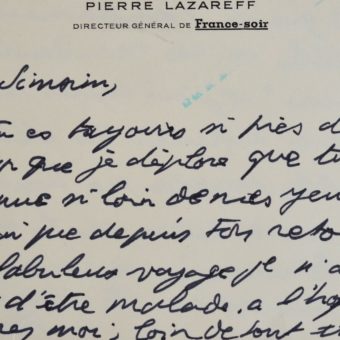 PIERRE LAZAREFF
DIRECTEUR GÉNÉRAL DE France-soir
Simoim,
es toujours si près d
que je déplore que tu
si loin de mes yeu
que depuis ton reto
fabuleux voyage je n'a
d'être malade. a l'hô
moi, loin de tout